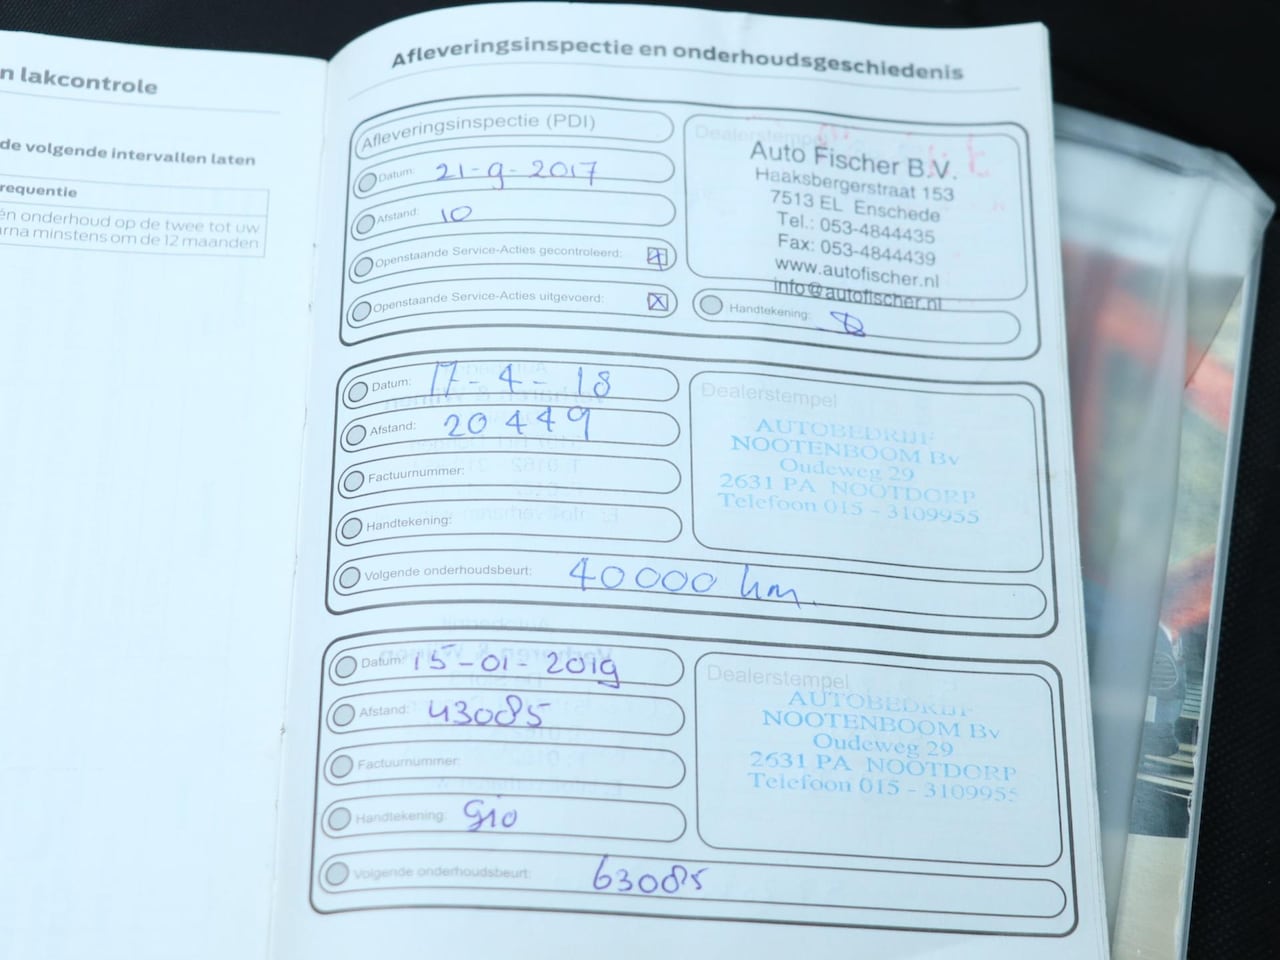 n lakcontrole
de volgende intervallen laten
requentie
én onderhoud op de twee tot uw
arna minstens om de 12 maanden
Afleveringsinspectie en onderhoudsgeschiedenis
Afleveringsinspectie (PDI)
Datum: 21-9-2017
Afstand: 10
Openstaande Service-Acties gecontroleerd:
Openstaande Service-Acties uitgevoerd:
Dealerstempel
Auto Fischer B.V.
Haaksbergerstraat 153
7513 EL Enschede
Tel.: 053-4844435
Fax: 053-4844439
www.autofischer.nl
info@autofischer.nl
Handtekening:
Datum: 17-4-18
Afstand: 20449
Factuurnummer:
Handtekening:
Volgende onderhoudsbeurt: 40000 km.
Dealerstempel
AUTOBEDRIJF
NOOTENBOOM Bv
Oudeweg 29
2631 PA NOOTDORP
Telefoon 015 - 3109955
Datum: 15-01-2019
Afstand: 43085
Factuurnummer:
Handtekening: Gio
Volgende onderhoudsbeurt: 63085
Dealerstempel
AUTOBEDRIJF
NOOTENBOOM Bv
Oudeweg 29
2631 PA NOOTDORP
Telefoon 015 - 3109955